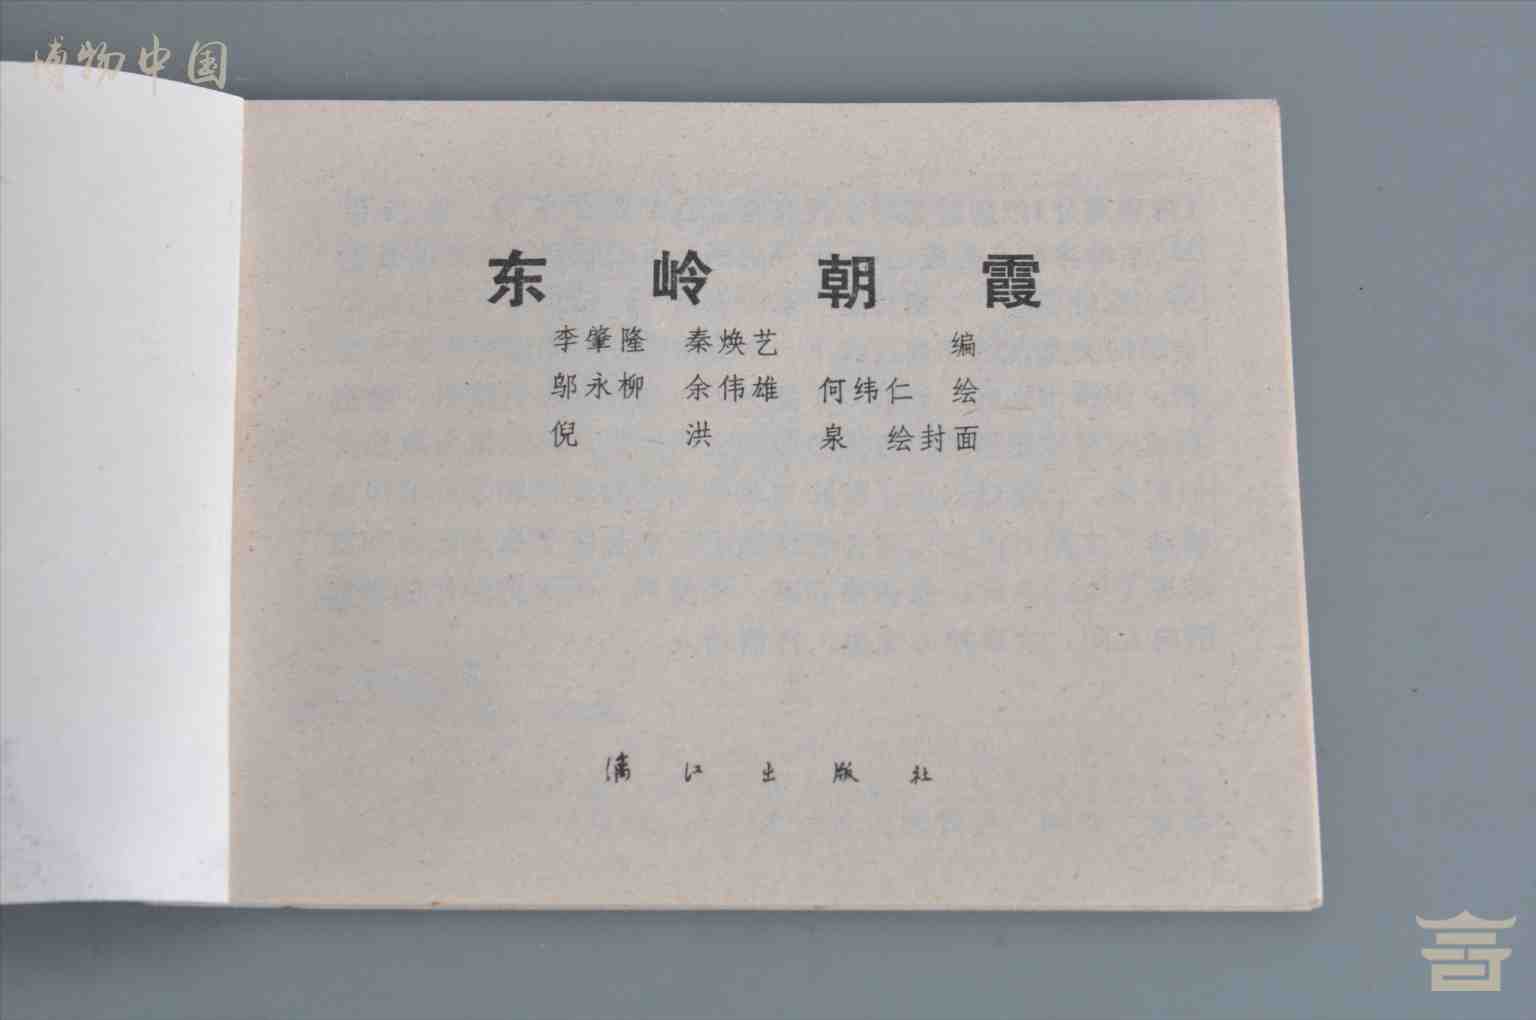 博物中国
东岭朝霞
李肇隆 秦焕艺 编
邬永柳 余伟雄 何纬仁 绘
倪洪泉 绘封面
漓江出版社